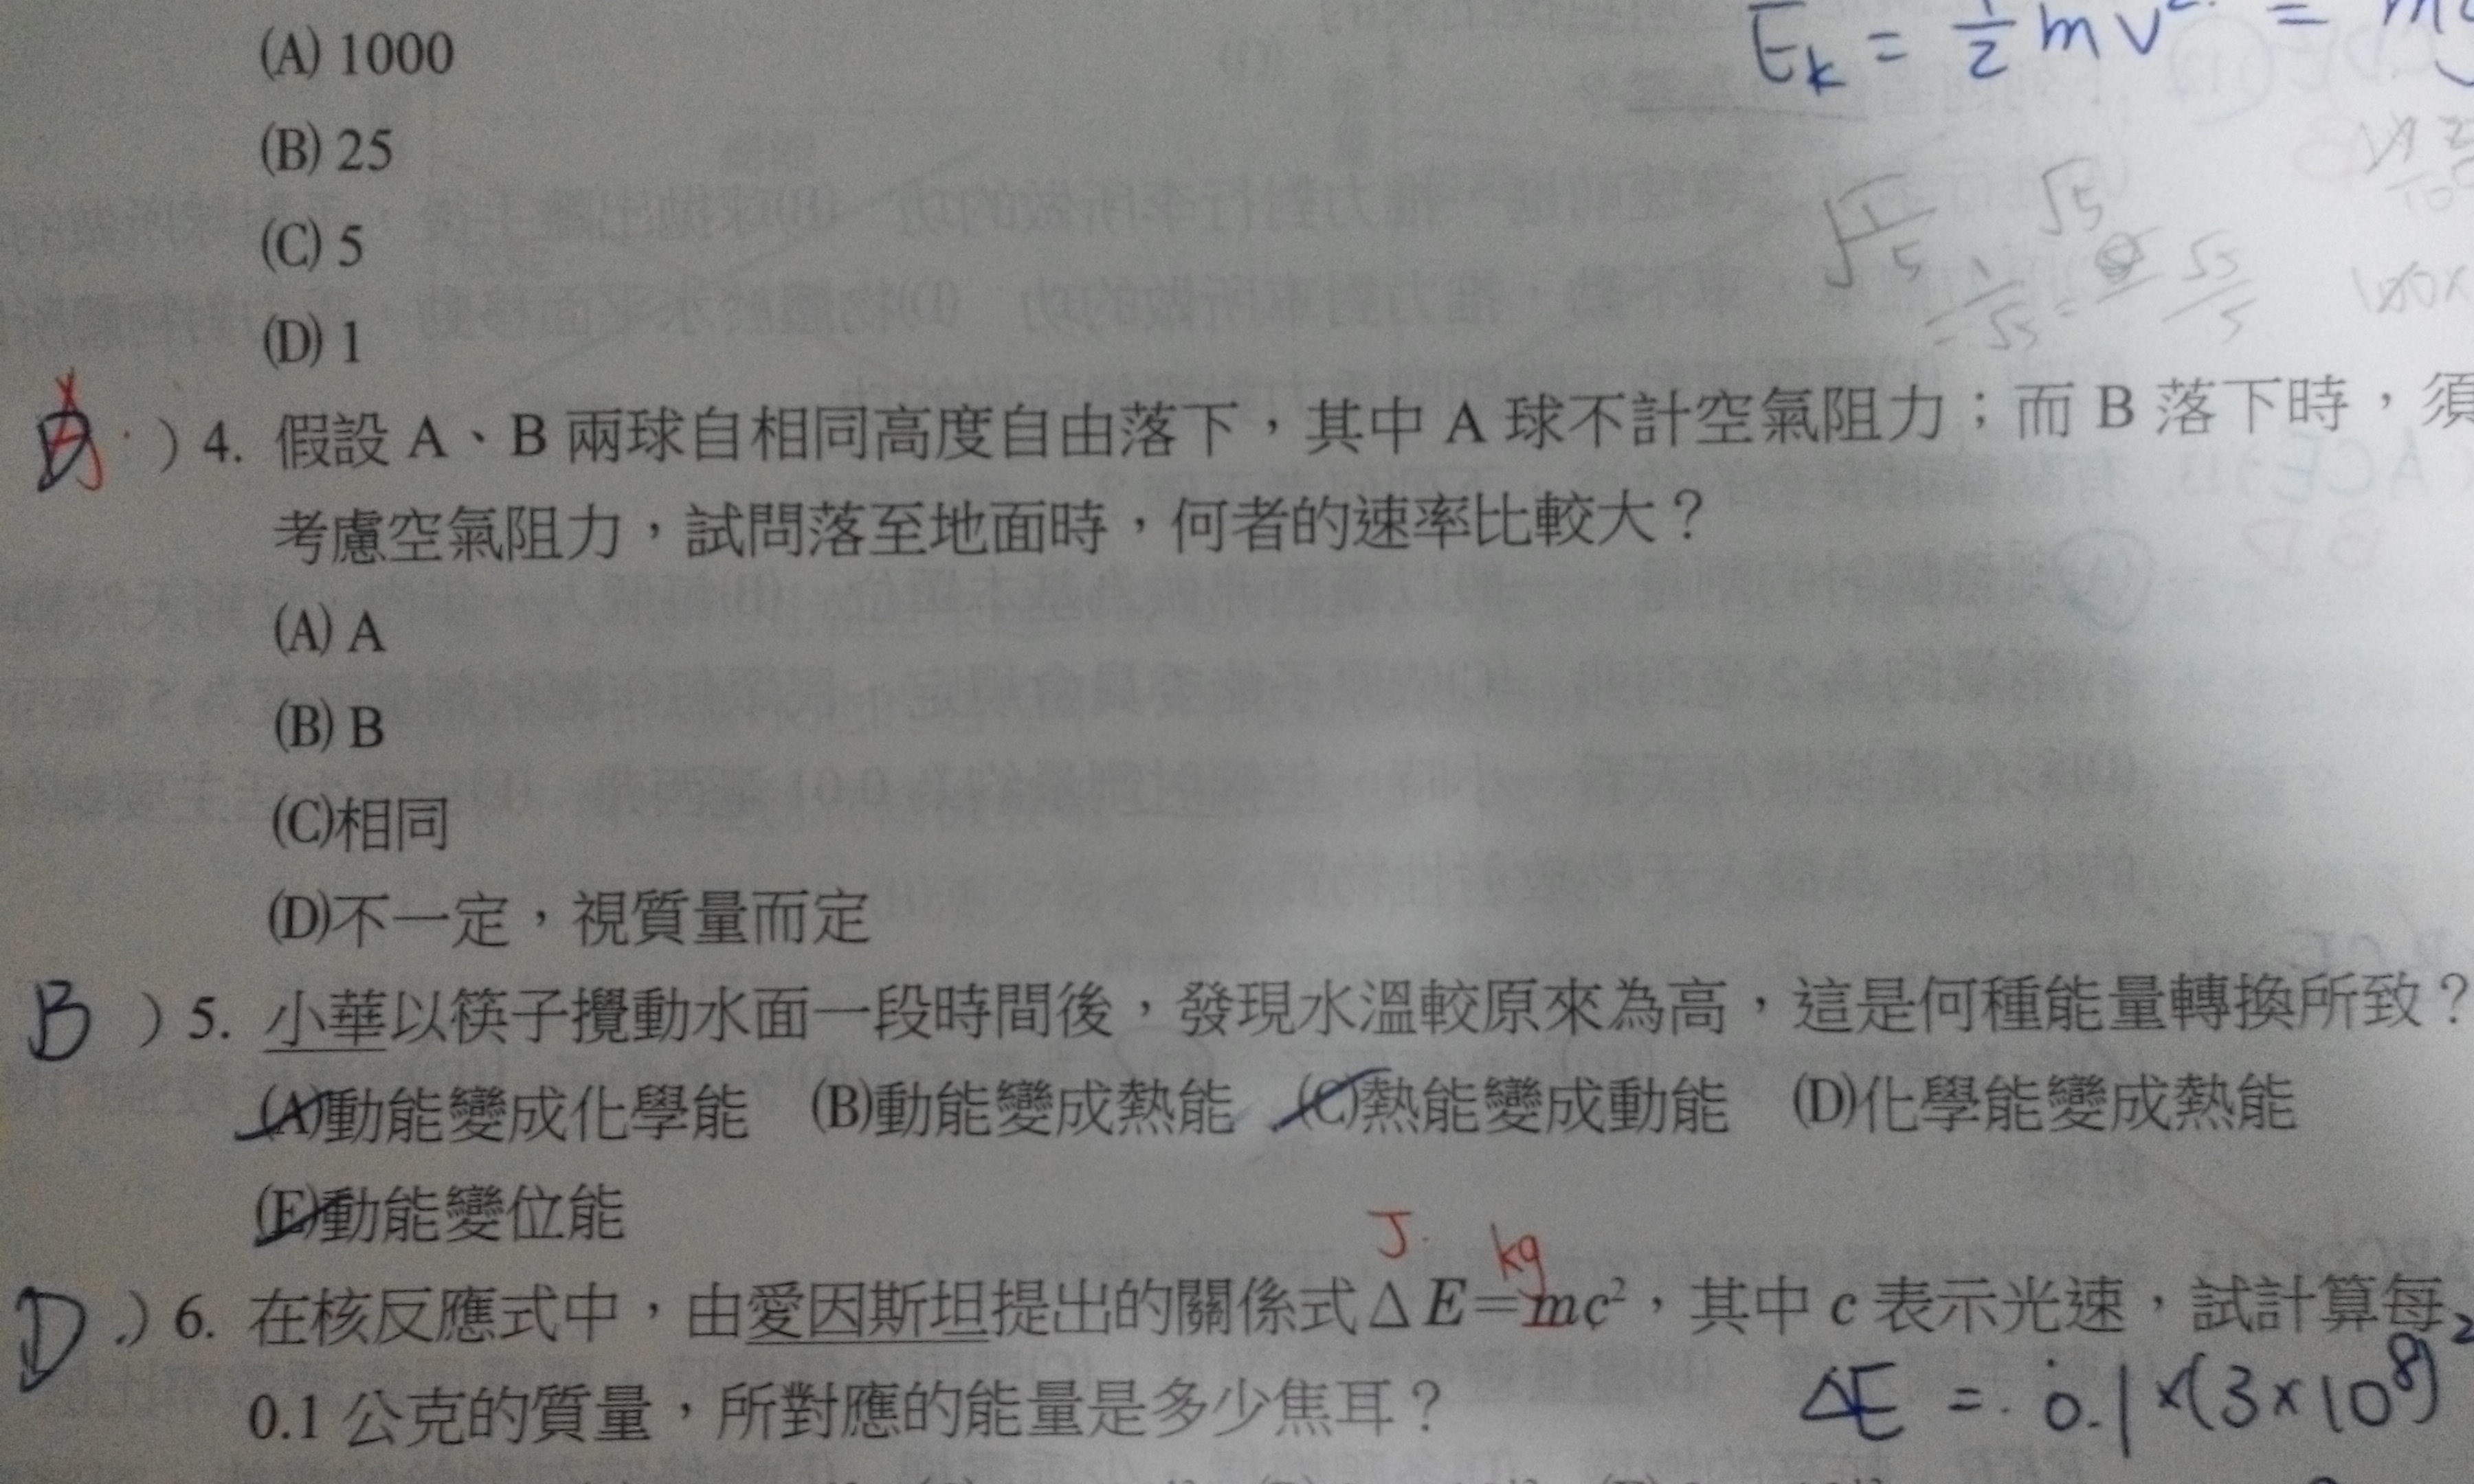 (A) 1000
(B) 25
(C) 5
(D) 1
) 4. 假設 A、B 兩球自相同高度自由落下，其中 A 球不計空氣阻力；而 B 落下時，須
考慮空氣阻力，試問落至地面時，何者的速率比較大？
(A) A
(B) B
(C)相同
(D)不一定，視質量而定
B ) 5. 小華以筷子攪動水面一段時間後，發現水溫較原來為高，這是何種能量轉換所致？
(A)動能變成化學能 (B)動能變成熱能 (C)熱能變成動能 (D)化學能變成熱能
(E)動能變位能
J kg
D ) 6. 在核反應式中，由愛因斯坦提出的關係式 ΔE=mc²，其中 c 表示光速，試計算每
0.1 公克的質量，所對應的能量是多少焦耳？
ΔE = 0.1×(3×10⁸)²
Eₖ = ½mv² =